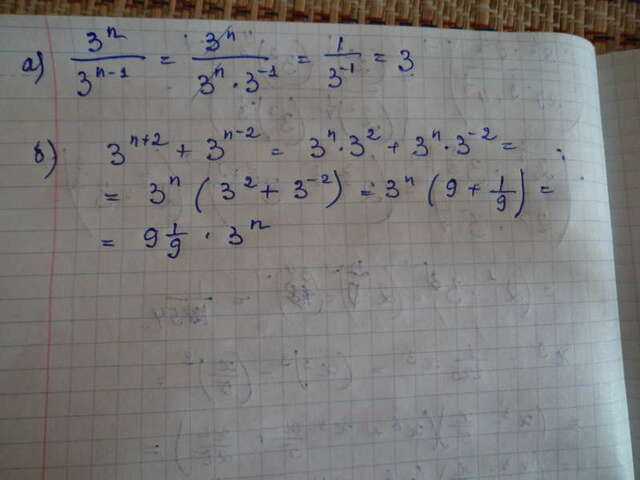 а) 3ⁿ/3ⁿ⁻¹ = 3ⁿ/(3ⁿ · 3⁻¹) = 1/3⁻¹ = 3
б) 3ⁿ⁺² + 3ⁿ⁻² = 3ⁿ · 3² + 3ⁿ · 3⁻² =
= 3ⁿ (3² + 3⁻²) = 3ⁿ (9 + 1/9) =
= 9 1/9 · 3ⁿ